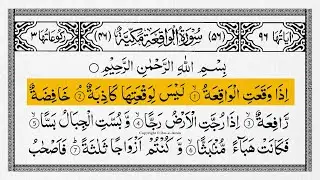 اٰیَاتُهَا ٩٦ (٥٦) سُوْرَةُ الْوَاقِعَةِ مَكِّيَّةٌ (٤٦) رُكُوْعَاتُهَا ٣
بِسْمِ اللّٰهِ الرَّحْمٰنِ الرَّحِيْمِ ○
اِذَا وَقَعَتِ الْوَاقِعَةُ ۙ﴿١﴾ لَيْسَ لِوَقْعَتِهَا كَاذِبَةٌ ۘ﴿٢﴾ خَافِضَةٌ
رَّافِعَةٌ ۙ﴿٣﴾ اِذَا رُجَّتِ الْاَرْضُ رَجًّا ۙ﴿٤﴾ وَّ بُسَّتِ الْجِبَالُ بَسًّا ۙ﴿٥﴾
فَكَانَتْ هَبَآءً مُّنْۢبَثًّا ۙ﴿٦﴾ وَّ كُنْتُمْ اَزْوَاجًا ثَلٰثَةً ؕ﴿٧﴾ فَاَصْحٰبُ